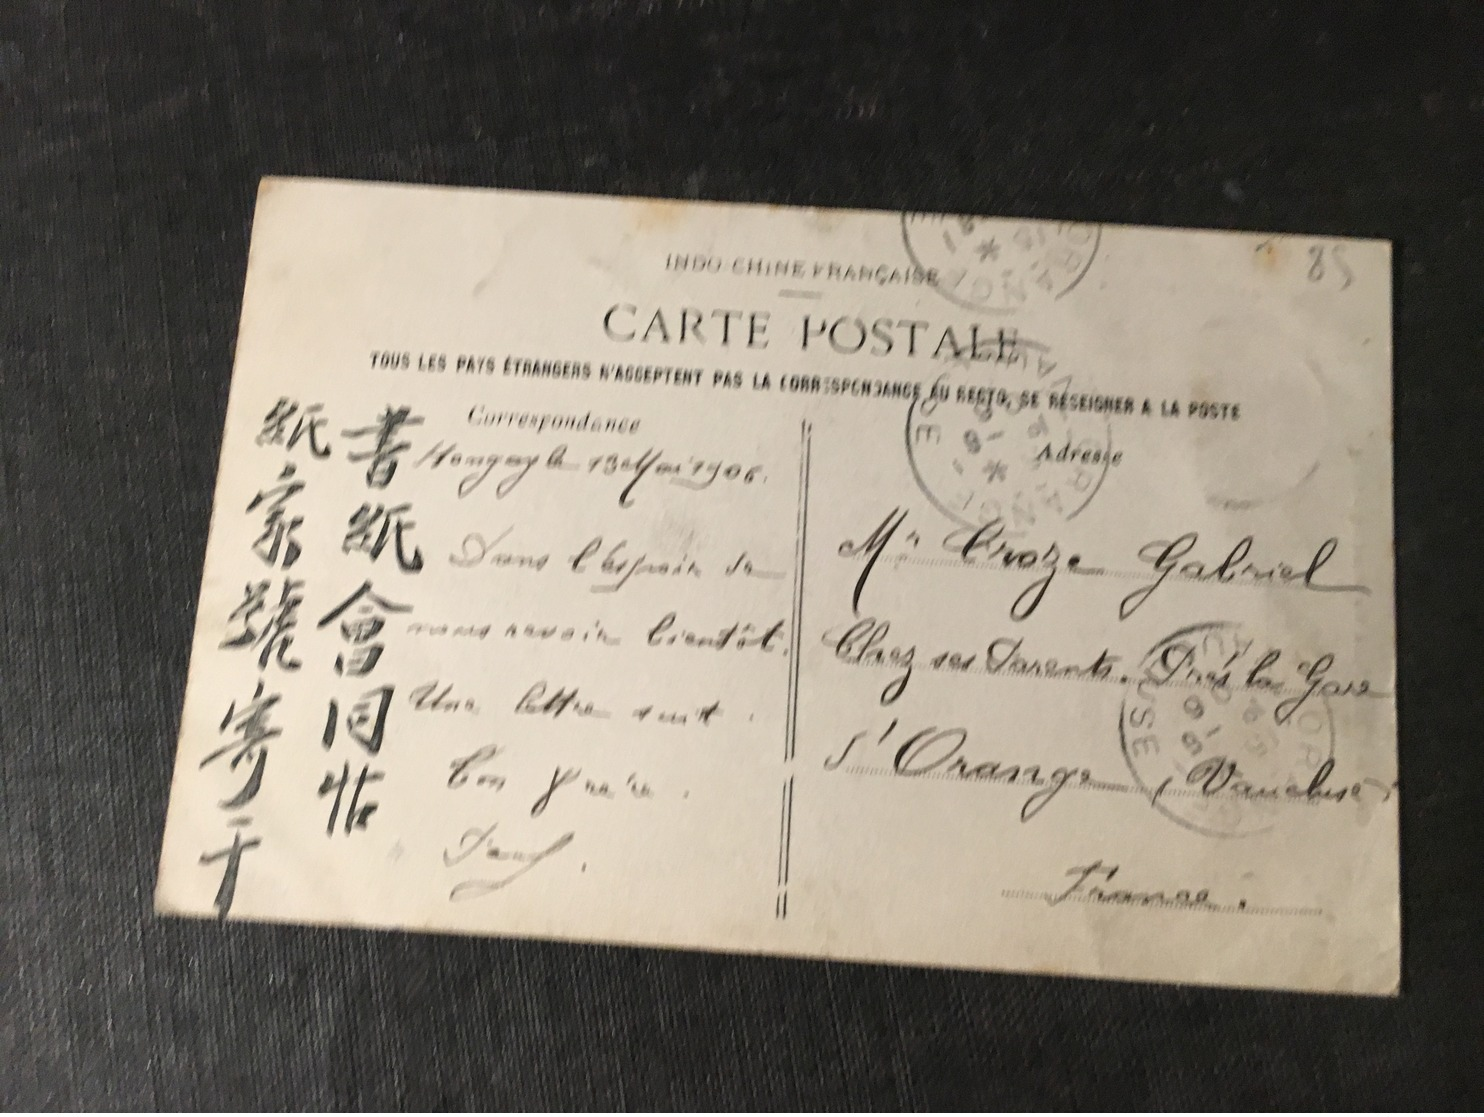 85
INDO-CHINE FRANÇAISE
CARTE POSTALE
TOUS LES PAYS ÉTRANGERS N'ACCEPTENT PAS LA CORRESPONDANCE AU RECTO, SE RESEIGNER A LA POSTE
Correspondance
Hongay le 13 Mai 1906.
Dans l'espoir de
nous revoir bientôt.
Une lettre suit.
Ton frère.
書紙會同
紙家號寄于
Adresse
Mr Croze Gabriel
Chez ses Parents. Près la Gare
d'Orange, Vaucluse
France.
ORANGE
ORANGE
ORANGE
VAUCLUSE